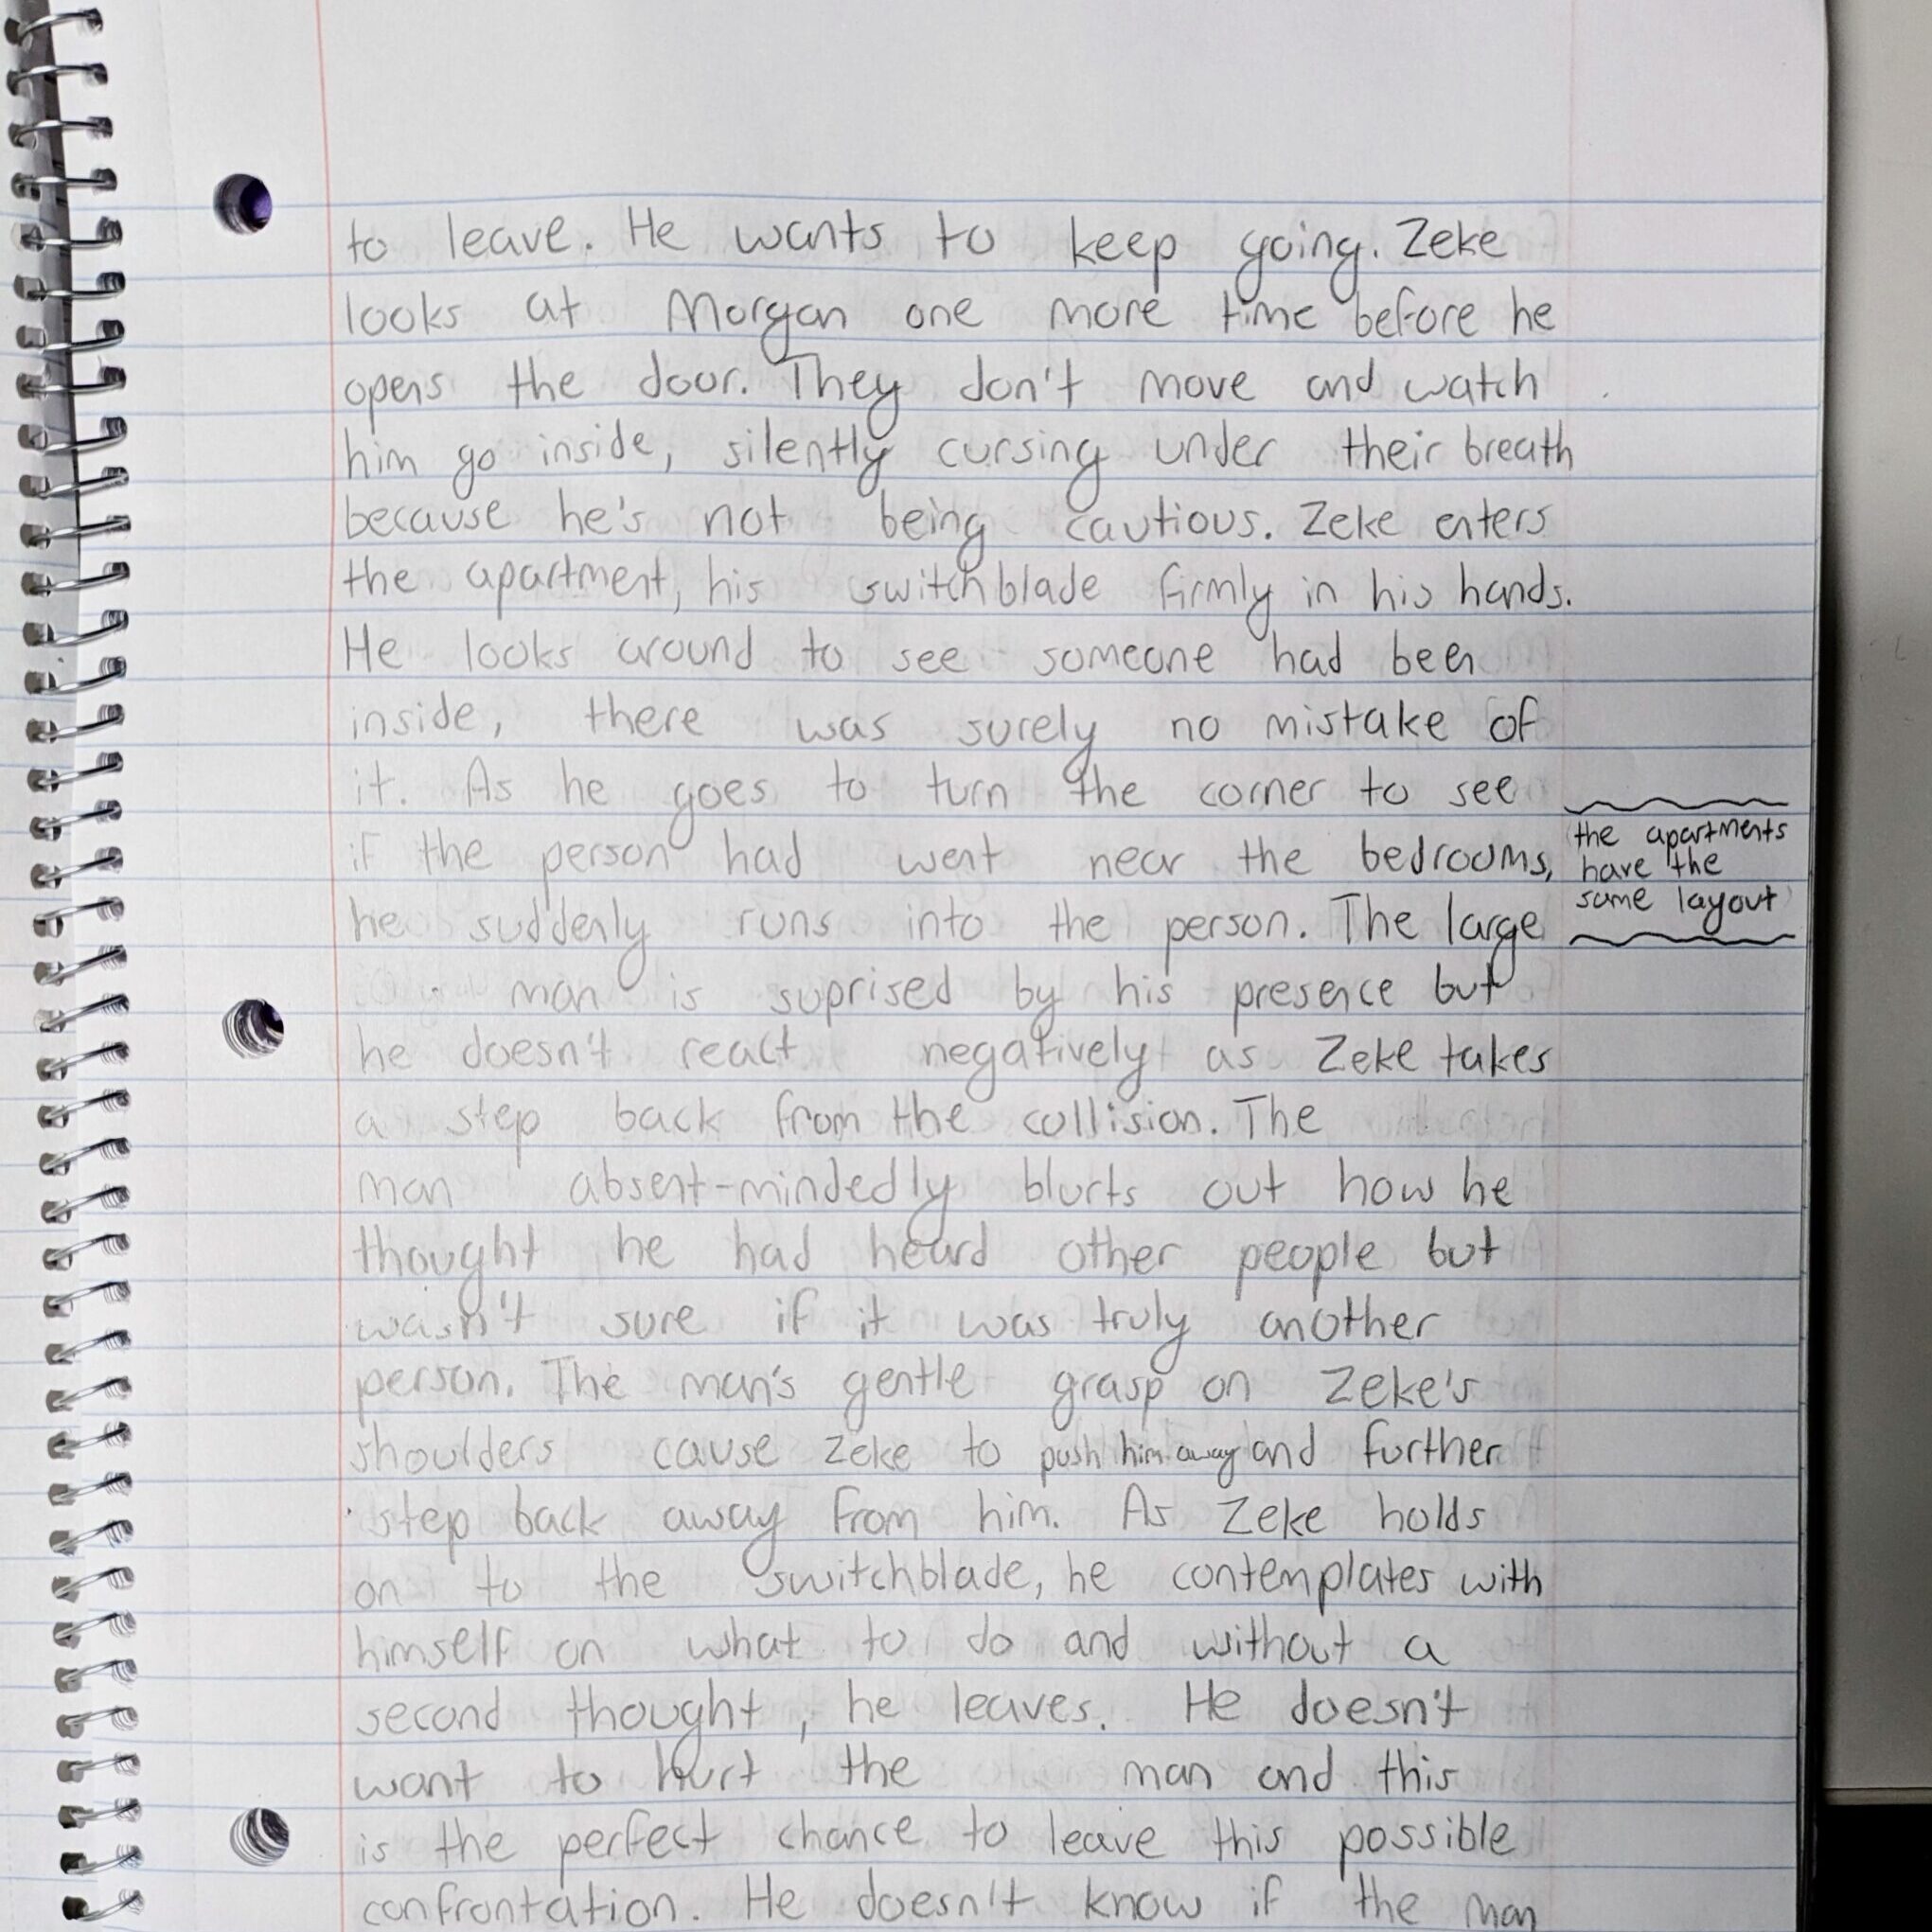 to leave. He wants to keep going. Zeke
looks at Morgan one more time before he
opens the door. They don't move and watch
him go inside, silently cursing under their breath
because he's not being cautious. Zeke enters
the apartment, his switchblade firmly in his hands.
He looks around to see someone had been
inside, there was surely no mistake of
it. As he goes to turn the corner to see
if the person had went near the bedrooms,
he suddenly runs into the person. The large
man is suprised by his presence but
he doesn't react negatively as Zeke takes
a step back from the collision. The
man absent-mindedly blurts out how he
thought he had heard other people but
wasn't sure if it was truly another
person. The man's gentle grasp on Zeke's
shoulders cause Zeke to push him away and further
step back away from him. As Zeke holds
on to the switchblade, he contemplates with
himself on what to do and without a
second thought, he leaves. He doesn't
want to hurt the man and this
is the perfect chance to leave this possible
confrontation. He doesn't know if the man
the apartments
have the
same layout